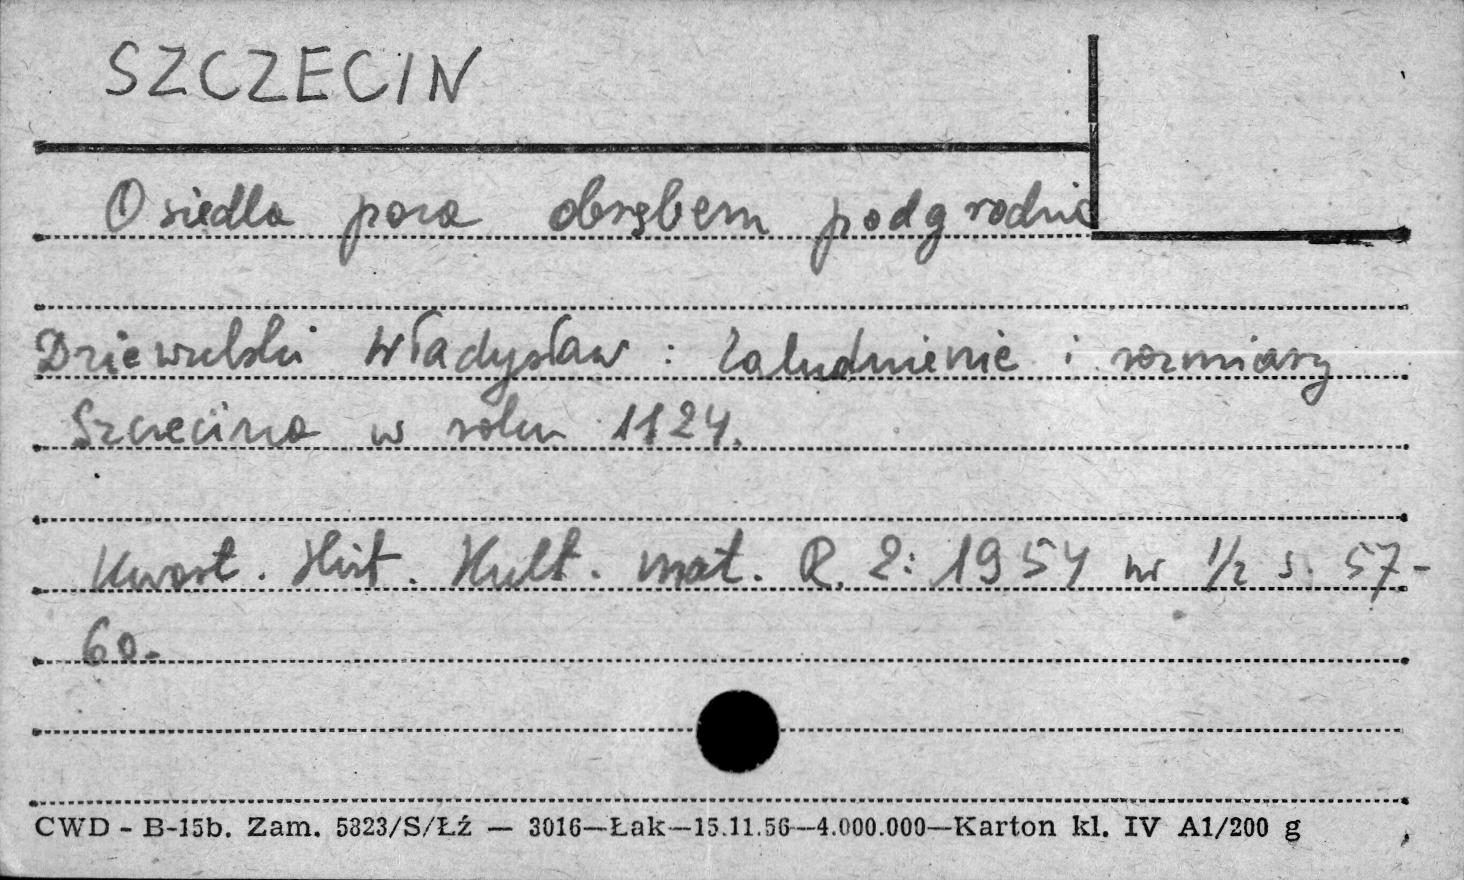 SZCZECIN
Osiedla poza obrębem podgrodzia
Dziewulski Władysław: Zaludnienie i rozmiary
Szczecina w roku 1124.
Kwart. Hist. Kult. mat. R. 2: 1954 nr 1/2 s. 57-
60.
CWD - B-15b. Zam. 5823/S/Łź — 3016—Łak—15.11.56—4.000.000—Karton kl. IV A1/200 g